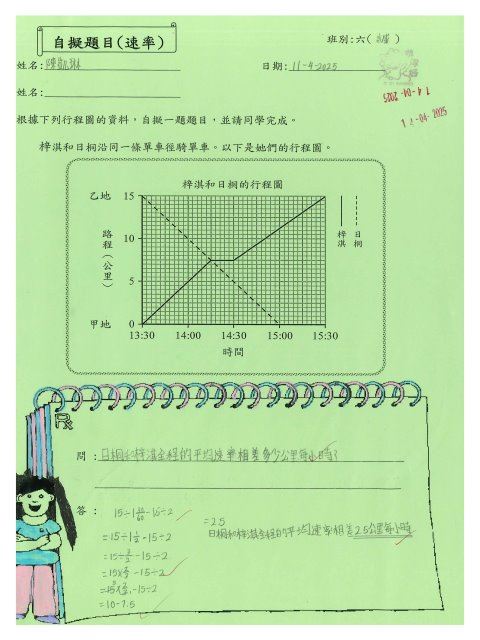 自擬題目(速率)
班別:六( )
姓名:陳凱琳
日期: 11-4-2025
姓名:
14-04-2025
12-04-2025
根據下列行程圖的資料,自擬一題題目,並請同學完成。
梓淇和日桐沿同一條單車徑騎單車。以下是她們的行程圖。
梓淇和日桐的行程圖
乙地 15
路程(公里)
10
5
甲地 0
13:30 14:00 14:30 15:00 15:30
時間
梓淇
日桐
問:日桐和梓淇全程的平均速率相差多少公里每小時?
答:
15÷1 30/60 -15÷2
=15÷1 1/2 -15÷2
=15÷3/2 -15÷2
=15×2/3 -15÷2
=15×2/3 -15÷2
=10-7.5
=2.5
日桐和梓淇全程的平均速率相差2.5公里每小時